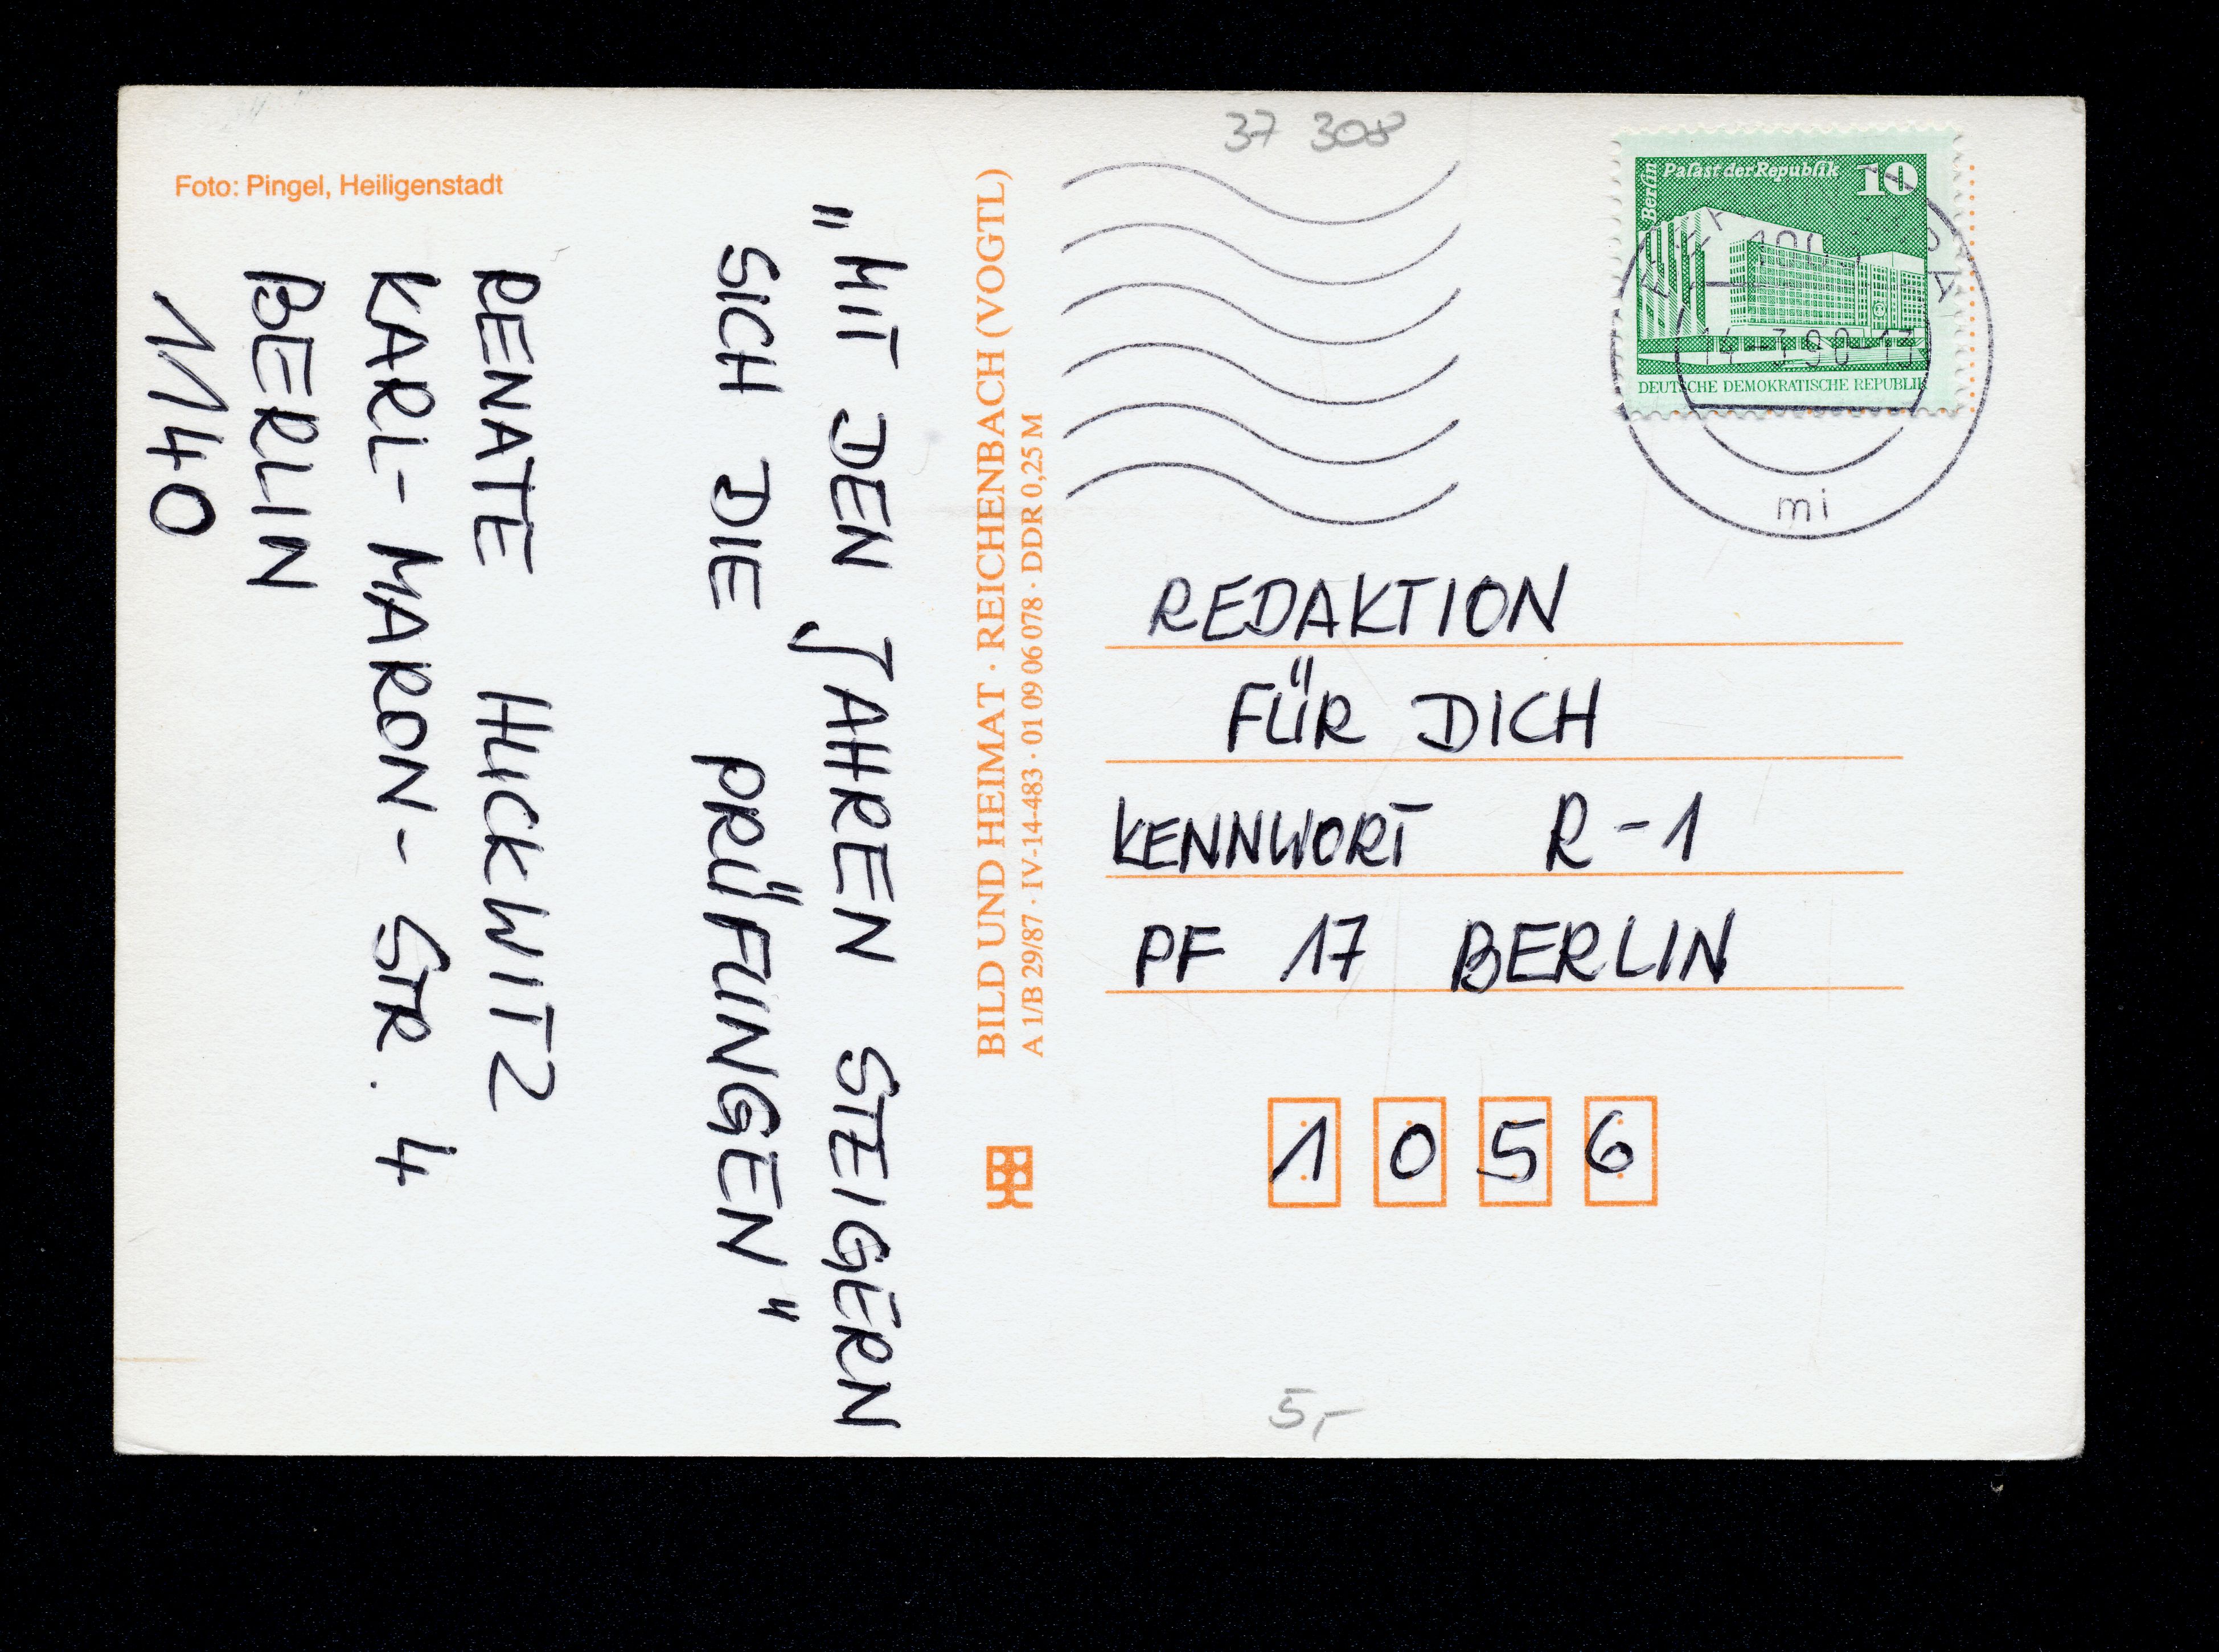 Foto: Pingel, Heiligenstadt
„MIT DEN JAHREN STEIGERN
SICH DIE PRÜFUNGEN"
RENATE HUCKWITZ
KARL-MARON-STR. 4
BERLIN
1140
BILD UND HEIMAT · REICHENBACH (VOGTL)
A 1/B 29/87 · IV-14-483 · 01 09 06 078 · DDR 0,25 M
37 308
Berlin
Palast der Republik 10
DEUTSCHE DEMOKRATISCHE REPUBLIK
mi
REDAKTION
FÜR DICH
KENNWORT R-1
PF 17 BERLIN
1056
5,-